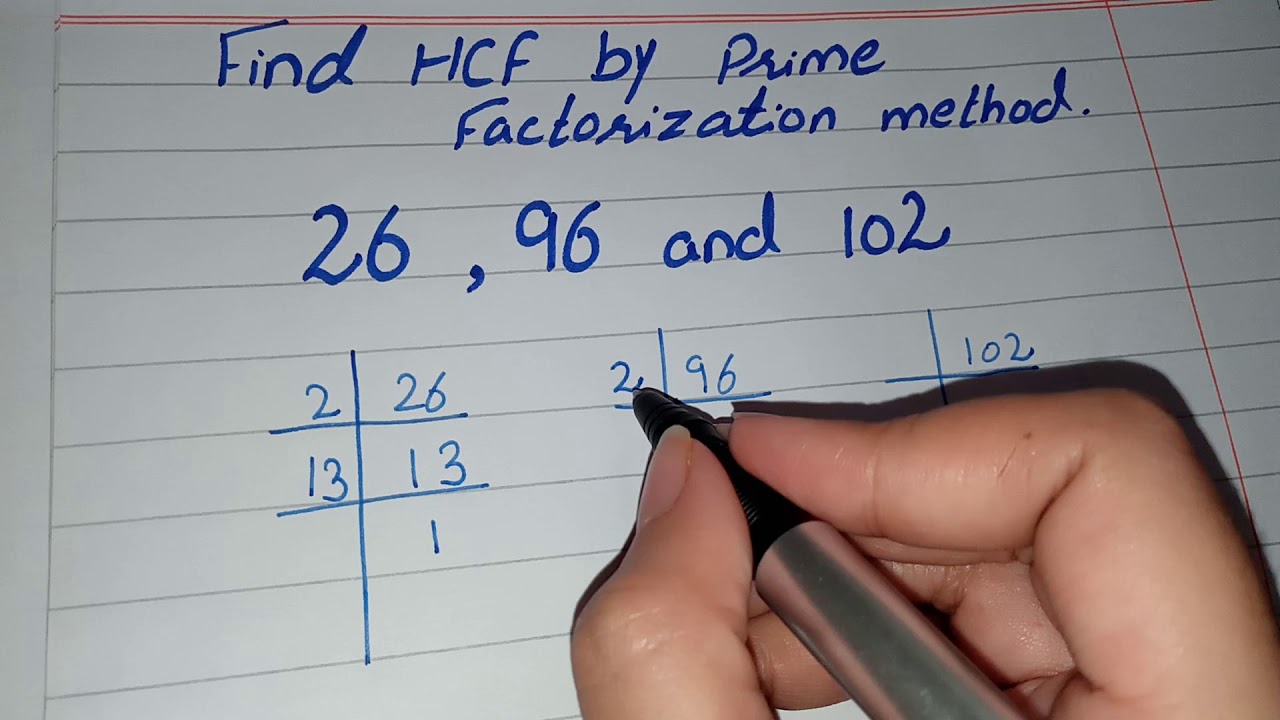 Find HCF by Prime
Factorization method.
26 , 96 and 102
2 26
13 13
1
2 96
102